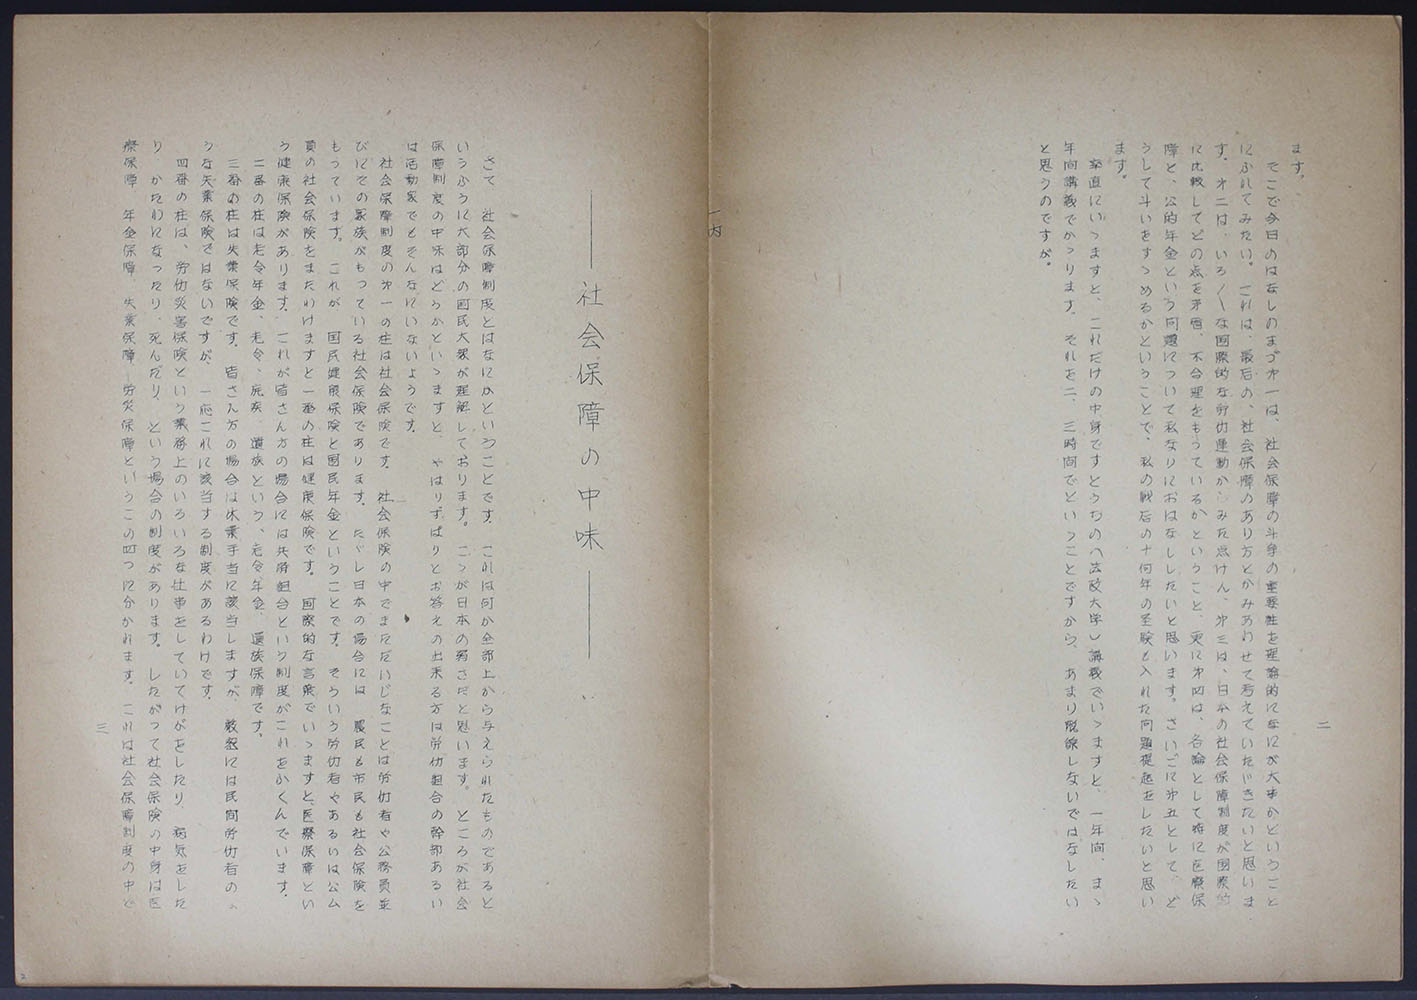 ます。
そこで今日のはなしのまづ才一は、社会保障の斗争の重要性を理論的になにが大事かということ
にふれてみたい。これは、最后の、社会保障のあり方とかみあわせて考えていたゞきたいと思いま
す。才二は、いろ〳〵な国際的な労仂運動からみた点けん、才三は、日本の社会保障制度が国際的
に比較してどの点を矛盾、不合理をもっているかということ、更に才四は、各論として特に医療保
障と、公的年金という问題について私なりにおはなししたいと思います。さいごに才五として、ど
うして斗いをすゝめるかということで、私の戦后の十何年の圣験も入れた问題提起をしたいと思い
ます。
率直にいゝますと、これだけの中身ですとうちの（法政大学）講義でいゝますと、一年间、まゝ
年间講義でかゝります。それを二、三時间でということですから、あまり脱線しないではなしたい
と思うのですが。
二
一内
――社会保障の中味――
さて、社会保障制度とはなにかということです。これは何か全部上から与えられたものであると
いうふうに大部分の国民大衆が理解しております。こゝが日本の弱さだと思います。ところが社会
保障制度の中味はどうかといゝますと、やはりずばりとお答えの出来る方は労仂組合の幹部あるい
は活動家でもそんなにいないようです。
社会保障制度の才一の柱は社会保険です。社会保険の中でまただいじなことは労仂者や公務員並
びにその家族がもっている社会保険であります。たゞし日本の場合には、農民も市民も社会保険を
もっています。これが、国民健康保険と国民年金ということです。そういう労仂者やあるいは公ム
員の社会保険をまたわけますと一番の柱は健康保険です。国際的な言葉でいゝますと、医療保障とい
う健康保険があります。これが皆さん方の場合には共済組合という制度がこれをかくんでいます。
二番の柱は老令年金、老令、廃疾、遺族という、老令年金、遺族保障です。
三番の柱は失業保険です。皆さん方の場合は休業手当に該当しますが、数紀には民间労仂者のよ
うな失業保険ではないですが、一応これに該当する制度があるわけです。
四番の柱は、労仂災害保険という業務上のいろいろな仕事をしていてけがをしたり、病気をした
り、かたわになったり、死んだり、という場合の制度があります。したがって社会保険の中身は医
療保障、年金保障、失業保障、労災保障というこの四つに分かれます。これは社会保障制度の中で
三
2